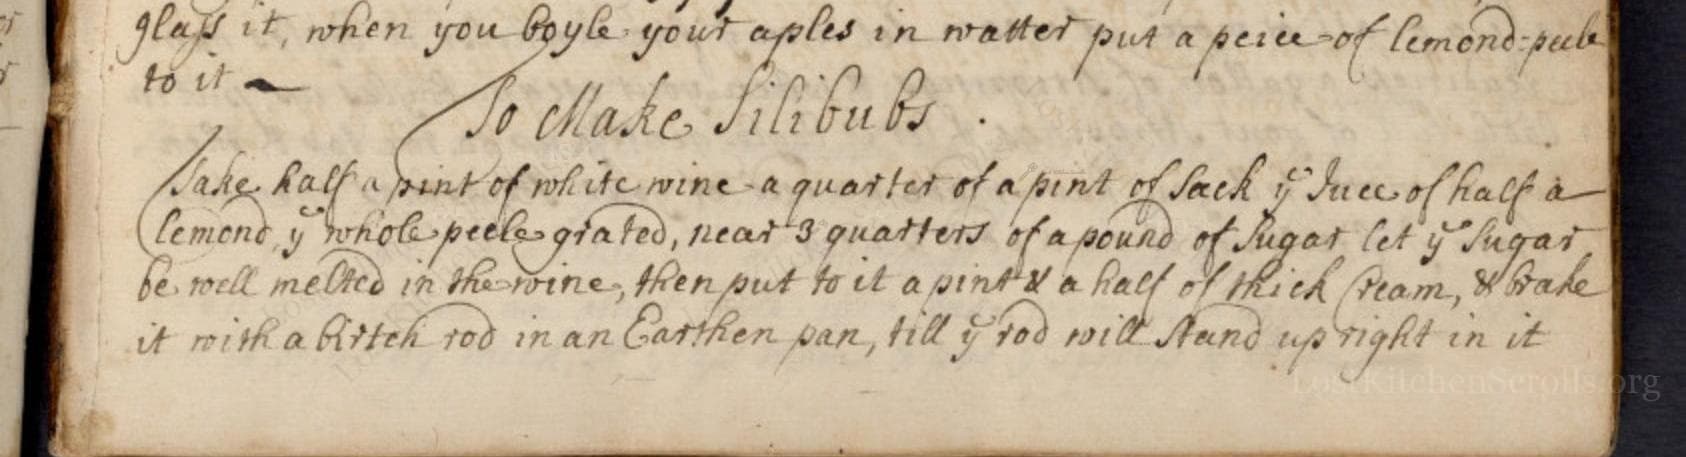 glass it, when you boyle your aples in watter put a peice of lemond=peele
to it
To Make Silibubs .
Take half a pint of white wine a quarter of a pint of Sack yͤ Juce of half a
lemond yͤ whole peele grated, near 3 quarters of a pound of Sugar let yͤ Sugar
be well melted in the wine, then put to it a pint & a half of thick Cream, & brake
it with a birtch rod in an Earthen pan, till yͤ rod will Stand up right in it
LostKitchenScrolls.org